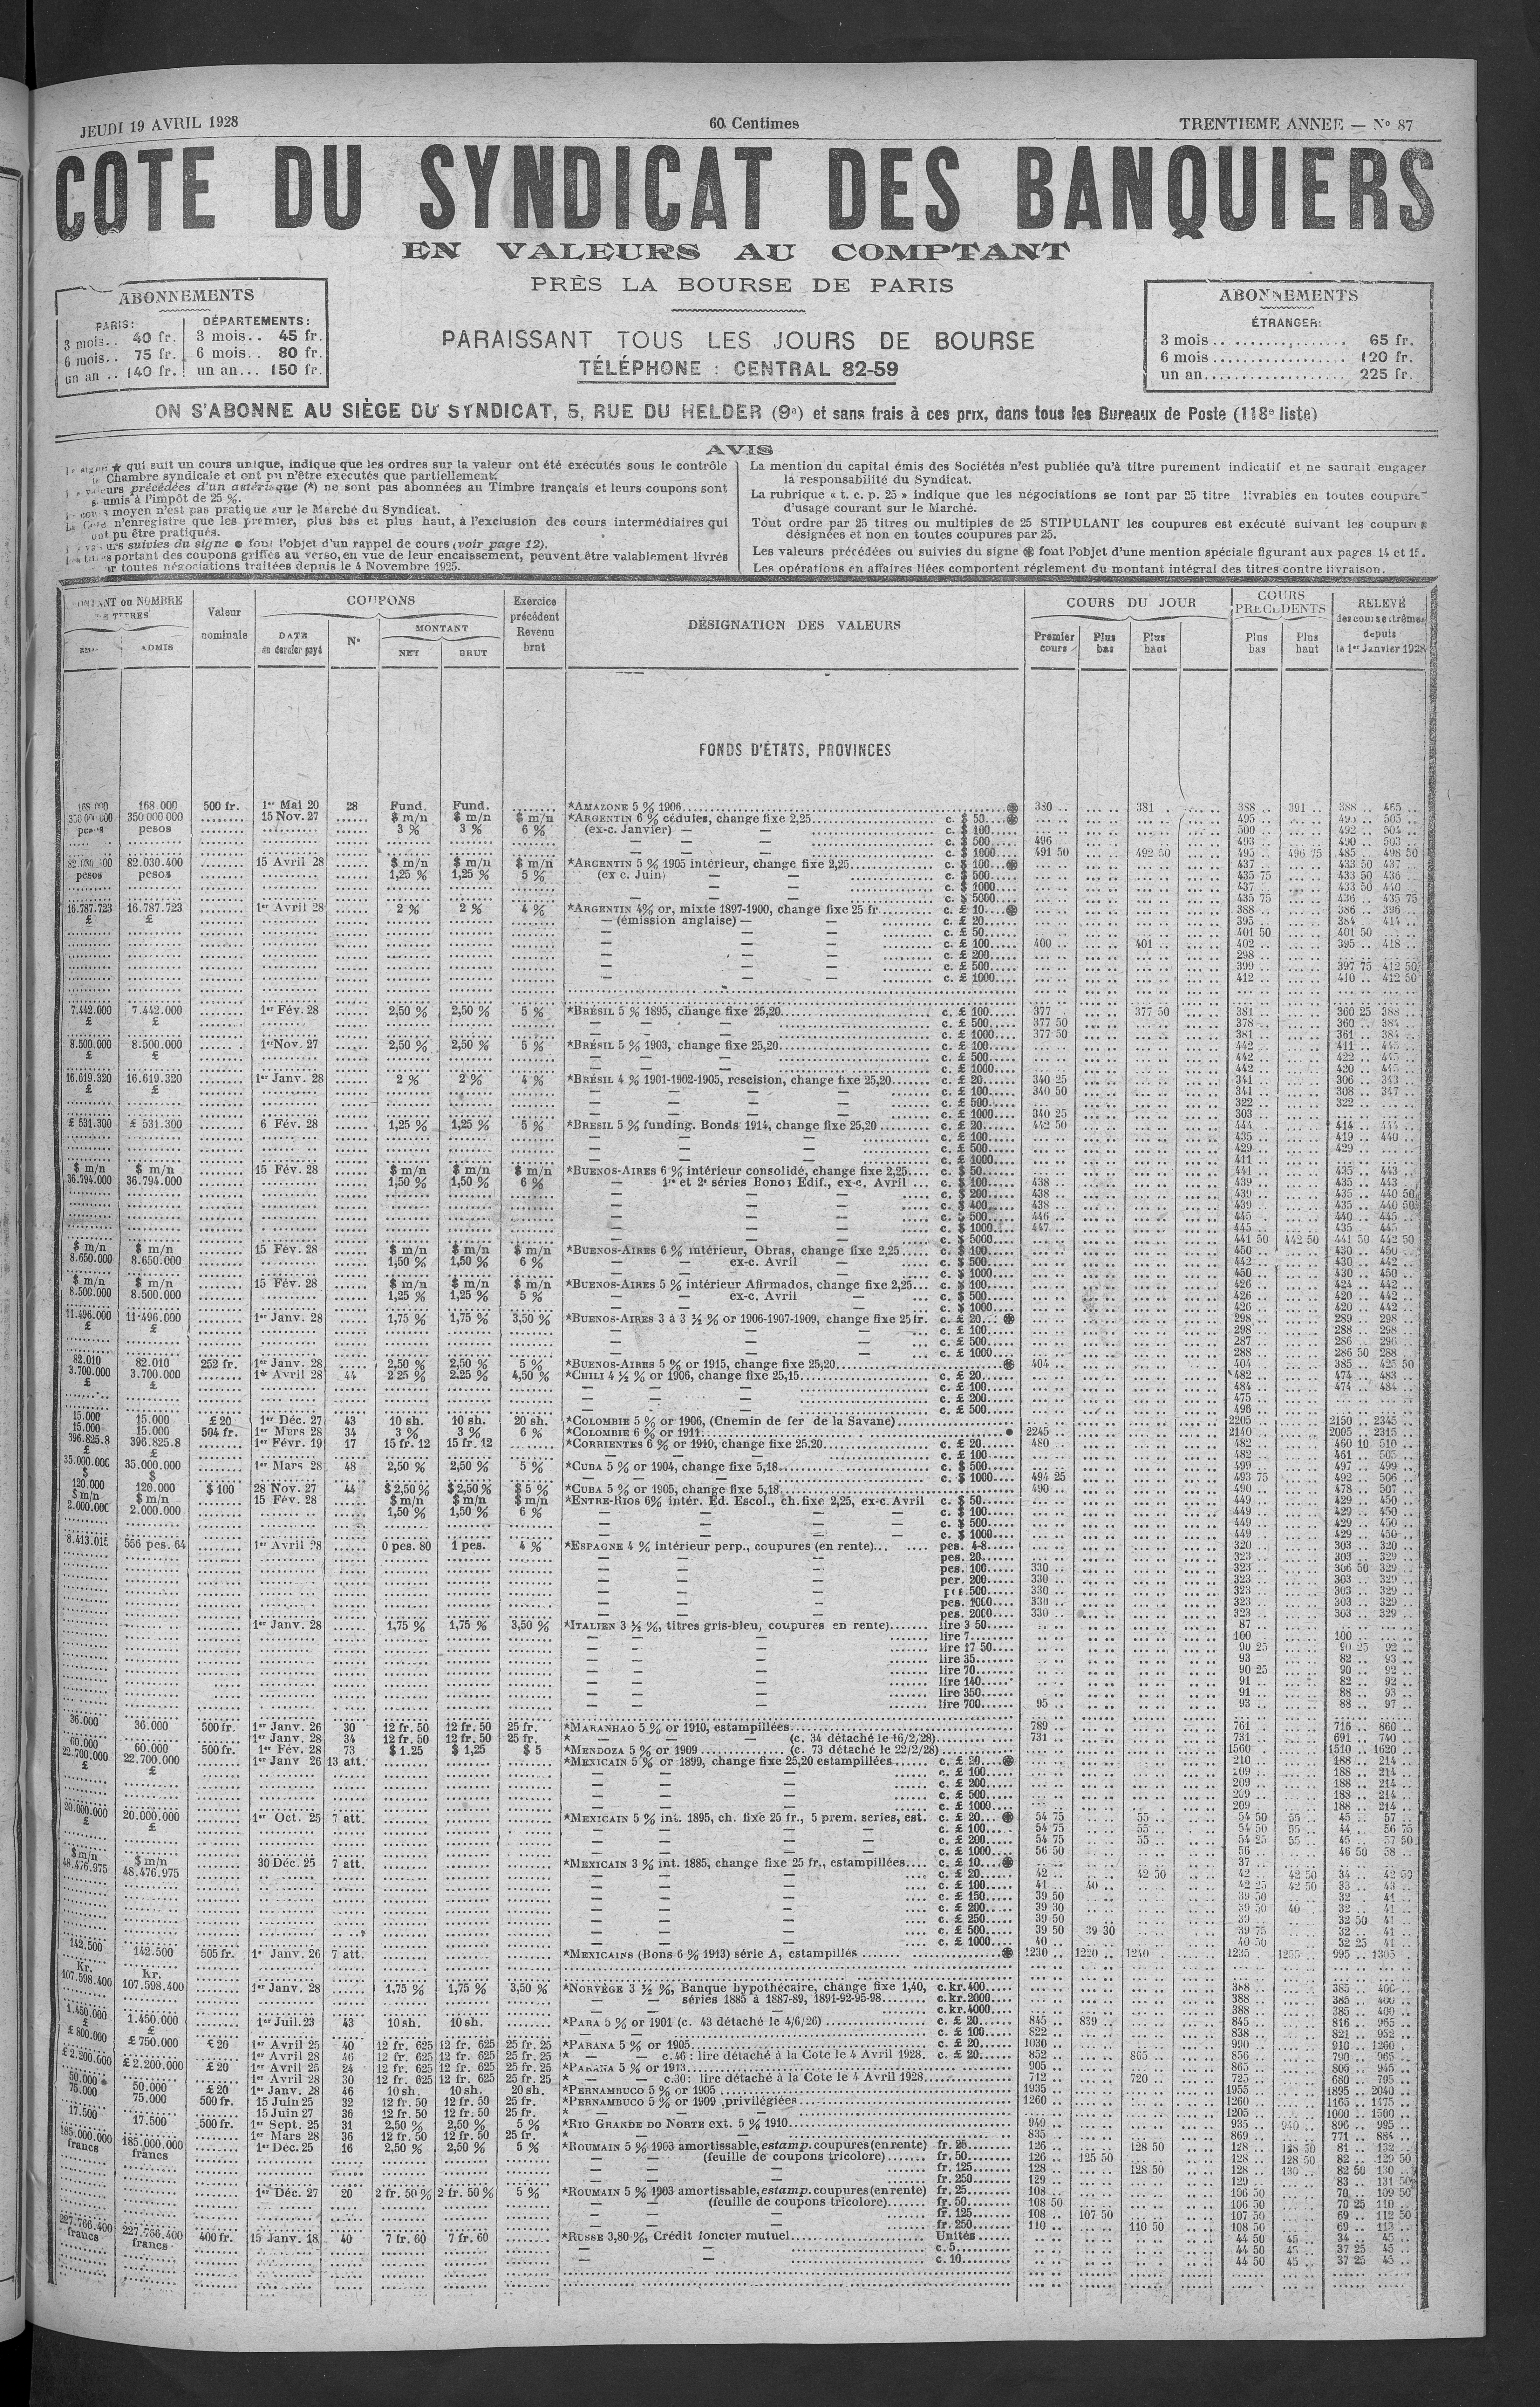 JEUDI 19 AVRIL 1928
60 Centimes
TRENTIEME ANNEE — No 87
COTE DU SYNDICAT DES BANQUIERS
EN VALEURS AU COMPTANT
PRÈS LA BOURSE DE PARIS
PARAISSANT TOUS LES JOURS DE BOURSE
TÉLÉPHONE : CENTRAL 82-59
ABONNEMENTS
PARIS: DÉPARTEMENTS:
3 mois.. 40 fr. 3 mois.. 45 fr.
6 mois.. 75 fr. 6 mois.. 80 fr.
un an .. 140 fr. un an... 150 fr.
ABONNEMENTS
ÉTRANGER:
3 mois 65 fr.
6 mois 120 fr.
un an 225 fr.
ON S'ABONNE AU SIÈGE DU SYNDICAT, 5, RUE DU HELDER (9e) et sans frais à ces prix, dans tous les Bureaux de Poste (118e liste)
AVIS
★ qui suit un cours unique, indique que les ordres sur la valeur ont été exécutés sous le contrôle
Chambre syndicale et ont pu n'être exécutés que partiellement.
précédées d'un astérisque (*) ne sont pas abonnées au Timbre français et leurs coupons sont
à l'impôt de 25 %.
moyen n'est pas pratiqué sur le Marché du Syndicat.
n'enregistre que les premier, plus bas et plus haut, à l'exclusion des cours intermédiaires qui
ont pu être pratiqués.
suivies du signe ● font l'objet d'un rappel de cours (voir page 12).
portant des coupons griffés au verso, en vue de leur encaissement, peuvent être valablement livrés
toutes négociations traitées depuis le 4 Novembre 1925.
La mention du capital émis des Sociétés n'est publiée qu'à titre purement indicatif et ne saurait engager
la responsabilité du Syndicat.
La rubrique « t. c. p. 25 » indique que les négociations se font par 25 titre livrables en toutes coupure
d'usage courant sur le Marché.
Tout ordre par 25 titres ou multiples de 25 STIPULANT les coupures est exécuté suivant les coupures
désignées et non en toutes coupures par 25.
Les valeurs précédées ou suivies du signe font l'objet d'une mention spéciale figurant aux pages 14 et 15.
Les opérations en affaires liées comportent réglement du montant intégral des titres contre livraison.
NOMBRE DE TITRES ADMIS
Valeur nominale
COUPONS
DATE du dernier payé
No
MONTANT
NET BRUT
Exercice précédent Revenu brut
DÉSIGNATION DES VALEURS
COURS DU JOUR
Premier cours Plus bas Plus haut
COURS PRÉCÉDENTS
Plus bas Plus haut
RELEVÉ des cours extrêmes depuis le 1er Janvier 1928
FONDS D'ÉTATS, PROVINCES
168.000 500 fr. 1er Mai 20 28 Fund. Fund. *AMAZONE 5 % 1906 380 381 388 391 388 465
350 000 000 15 Nov. 27 $ m/n $ m/n $ m/n *ARGENTIN 6 % cédules, change fixe 2,25 c. $ 50
pesos 3 % 3 % 6 % (ex-c. Janvier) — — c. $ 100
c. $ 500 496
c. $ 1000 491 50 492 50 495 496 75 485 498 50
82.030.400 15 Avril 28 $ m/n $ m/n $ m/n *ARGENTIN 5 % 1905 intérieur, change fixe 2,25 c. $ 100
pesos 1,25 % 1,25 % 5 % (ex c. Juin) — — c. $ 500
c. $ 1000
c. $ 5000
16.787.723 1er Avril 28 2 % 2 % 4 % *ARGENTIN 4% or, mixte 1897-1900, change fixe 25 fr c. £ 10 388 386 396
£ — (émission anglaise) — c. £ 20
c. £ 50 401 50 401 50
c. £ 100 400 401 402 395 418
c. £ 200 298
c. £ 500 399 397 75 412 50
c. £ 1000 412 410 412 50
7.442.000 7.442.000 1er Fév. 28 2,50 % 2,50 % 5 % *BRÉSIL 5 % 1895, change fixe 25,20 c. £ 100 377 377 50 381 360 25 388
c. £ 500 377 50 378
c. £ 1000 377 50 381
8.500.000 8.500.000 1er Nov. 27 2,50 % 2,50 % 5 % *BRÉSIL 5 % 1903, change fixe 25,20 c. £ 100 442
c. £ 500 442
c. £ 1000 442
16.619.320 16.619.320 1er Janv. 28 2 % 2 % 4 % *BRÉSIL 4 % 1901-1902-1905, rescision, change fixe 25,20 c. £ 20 340 25 341 306 343
c. £ 100 340 50 341 308 347
c. £ 500 322 322
c. £ 1000 340 25 303
£ 531.300 £ 531.300 6 Fév. 28 1,25 % 1,25 % 5 % *BRESIL 5 % funding. Bonds 1914, change fixe 25,20 c. £ 20 442 50 444
c. £ 100 435 419 440
c. £ 500 429 429
c. £ 1000 411
$ m/n $ m/n 15 Fév. 28 $ m/n $ m/n $ m/n *BUENOS-AIRES 6 % intérieur consolidé, change fixe 2,25 c. $ 50 441 435 443
36.794.000 36.794.000 1,50 % 1,50 % 6 % — 1re et 2e séries Bonos Edif., ex-c. Avril c. $ 100 438 439 435 443
c. $ 200 438 439 435 440 50
c. $ 400 438 439 435 440 50
c. $ 500 446 445 440 445
c. $ 1000 447 445 435 445
c. $ 5000 441 50 442 50 441 50 442 50
$ m/n $ m/n 15 Fév. 28 $ m/n $ m/n $ m/n *BUENOS-AIRES 6 % intérieur, Obras, change fixe 2,25 c. $ 100 450 430 450
8.650.000 8.650.000 1,50 % 1,50 % 6 % ex-c. Avril c. $ 500 442 430 442
c. $ 1000 450 430 450
$ m/n $ m/n 15 Fév. 28 $ m/n $ m/n $ m/n *BUENOS-AIRES 5 % intérieur Afirmados, change fixe 2,25 c. $ 100 426 424 442
8.500.000 8.500.000 1,25 % 1,25 % 5 % ex-c. Avril c. $ 500 426 420 442
c. $ 1000 426 420 442
11.496.000 11.496.000 1er Janv. 28 1,75 % 1,75 % 3,50 % *BUENOS-AIRES 3 à 3 ½ % or 1906-1907-1909, change fixe 25 fr. c. £ 20 298 289 298
c. £ 100 288 288 298
c. £ 500 287 286 296
c. £ 1000 288 286 50 288
82.010 82.010 252 fr. 1er Janv. 28 2,50 % 2,50 % 5 % *BUENOS-AIRES 5 % or 1915, change fixe 25,20 404 404 385 425 50
3.700.000 3.700.000 1er Avril 28 44 2 25 % 2.25 % 4,50 % *CHILI 4 ½ % or 1906, change fixe 25,15 c. £ 20 482 474 483
c. £ 100 484 474 484
c. £ 200 475
c. £ 500 496
15.000 15.000 £ 20 1er Déc. 27 43 10 sh. 10 sh. 20 sh. *COLOMBIE 5 % or 1906, (Chemin de fer de la Savane) 2205 2150 2345
15.000 15.000 504 fr. 1er Mars 28 34 3 % 3 % 6 % *COLOMBIE 6 % or 1911 2245 2140 2005 2315
396.825.8 396.825.8 1er Févr. 19 17 15 fr. 12 15 fr. 12 *CORRIENTES 6 % or 1910, change fixe 25.20 c. £ 20 480 482 460 10 510
c. £ 100 482 461 505
35.000.000 35.000.000 1er Mars 28 48 2,50 % 2,50 % 5 % *CUBA 5 % or 1904, change fixe 5,18 c. $ 500 499 497 499
c. $ 1000 494 25 493 75 492 506
120.000 120.000 $ 100 28 Nov. 27 44 $ 2,50 % $ 2,50 % $ 5 % *CUBA 5 % or 1905, change fixe 5,18 490 490 478 507
$ m/n $ m/n 15 Fév. 28 $ m/n $ m/n $ m/n *ENTRE-RIOS 6% intér. Ed. Escol., ch. fixe 2,25, ex-c. Avril c. $ 50 449 429 450
2.000.000 2.000.000 1,50 % 1,50 % 6 % c. $ 100 449 429 450
c. $ 500 449 429 450
c. $ 1000 449 429 450
556 pes. 64 1er Avril 28 0 pes. 80 1 pes. 4 % *ESPAGNE 4 % intérieur perp., coupures (en rente) pes. 4-8 320 303 320
pes. 20 323 303 329
pes. 100 330 323 306 50 329
per. 200 330 323 303 329
pes. 500 330 323 303 329
pes. 1000 330 323 303 329
pes. 2000 330 323 303 329
1er Janv. 28 1,75 % 1,75 % 3,50 % *ITALIEN 3 ½ %, titres gris-bleu, coupures en rente) lire 3 50 87
lire 7 100 100
lire 17 50 90 25 90 25 92
lire 35 93 82 93
lire 70 90 25 90 92
lire 140 91 82 92
lire 350 91 88 93
lire 700 95 93 88 97
36.000 36.000 500 fr. 1er Janv. 26 30 12 fr. 50 12 fr. 50 25 fr. *MARANHAO 5 % or 1910, estampillées 789 761 716 860
1er Janv. 28 34 12 fr. 50 12 fr. 50 25 fr. * — (c. 34 détaché le 16/2/28) 731 731 691 740
60.000 60.000 500 fr. 1er Fév. 28 73 $ 1.25 $ 1,25 $ 5 *MENDOZA 5 % or 1909 (c. 73 détaché le 22/2/28) 1560 1510 1620
22.700.000 22.700.000 1er Janv 26 13 att. *MEXICAIN 5 % or 1899, change fixe 25,20 estampillées c. £ 20 210 188 214
c. £ 100 209 188 214
c. £ 200 209 188 214
c. £ 500 209 188 214
c. £ 1000 209 188 214
20.000.000 20.000.000 1er Oct. 25 7 att. *MEXICAIN 5 % int. 1895, ch. fixe 25 fr., 5 prem. series, est. c. £ 20 54 75 55 54 50 55 45 57
c. £ 100 54 75 55 54 50 55 44 56 75
c. £ 200 54 75 55 54 25 55 45 57 50
c. £ 1000 56 50 56 46 50 58
$ m/n $ m/n 30 Déc. 25 7 att. *MEXICAIN 3 % int. 1885, change fixe 25 fr., estampillées c. £ 10 37
48.476.975 48.476.975 c. £ 20 42 42 50 42 42 50 34 42 50
c. £ 100 41 40 42 25 42 50 33 43
c. £ 150 39 50 39 50 32 41
c. £ 200 39 30 39 50 40 32 41
c. £ 250 39 50 39 32 50 41
c. £ 500 39 50 39 30 39 75 32 41
c. £ 1000 40 40 50 32 25 41
142.500 142.500 505 fr. 1er Janv. 26 7 att. *MEXICAINS (Bons 6 % 1913) série A, estampillés 1230 1220 1240 1235 1255 995 1305
Kr. Kr.
107.598.400 107.598.400 1er Janv. 28 1,75 % 1,75 % 3,50 % *NORVÈGE 3 ½ %, Banque hypothécaire, change fixe 1,40, c. kr. 400 388 385 400
séries 1885 à 1887-89, 1891-92-95-98 c. kr. 2000 388 385 400
c. kr. 4000 388 385 400
1.450.000 1.450.000 1er Juil. 23 43 10 sh. 10 sh. *PARA 5 % or 1901 (c. 43 détaché le 4/6/26) c. £ 20 845 839 845 816 965
c. £ 100 822 838 821 952
£ 800.000 £ 750.000 £ 20 1er Avril 25 40 12 fr. 625 12 fr. 625 25 fr. 25 *PARANA 5 % or 1905 c. £ 20 1030 990 910 1260
1er Avril 28 46 12 fr. 625 12 fr. 625 25 fr. 25 * — — c. 46 : lire détaché à la Cote le 4 Avril 1928. c. £ 20 852 865 856 790 965
£ 2.200.000 £ 2.200.000 £ 20 1er Avril 25 24 12 fr. 625 12 fr. 625 25 fr. 25 *PARANA 5 % or 1913 905 865 805 945
1er Avril 28 30 12 fr. 625 12 fr. 625 25 fr. 25 * — — c. 30: lire détaché à la Cote le 4 Avril 1928 712 720 725 680 795
50.000 50.000 £ 20 1er Janv. 28 46 10 sh. 10 sh. 20 sh. *PERNAMBUCO 5 % or 1905 1935 1955 1895 2040
75.000 75.000 500 fr. 15 Juin 25 32 12 fr. 50 12 fr. 50 25 fr. *PERNAMBUCO 5 % or 1909 privilégiées 1260 1260 1165 1475
15 Juin 27 36 12 fr. 50 12 fr. 50 25 fr. * — 1205 1000 1500
17.500 17.500 500 fr. 1er Sept. 25 31 2,50 % 2,50 % 5 % *RIO GRANDE DO NORTE ext. 5 % 1910 949 935 940 896 995
1er Mars 28 36 12 fr. 50 12 fr. 50 25 fr. * — 835 869 771 884
185.000.000 185.000.000 1er Déc. 25 16 2,50 % 2,50 % 5 % *ROUMAIN 5 % 1903 amortissable, estamp. coupures (en rente) fr. 25 126 128 50 128 128 50 81 132
francs francs (feuille de coupons tricolore) fr. 50 126 125 50 128 128 50 82 129 50
fr. 125 128 128 50 128 130 82 50 130
fr. 250 129 129 83 131 50
1er Déc. 27 20 2 fr. 50 % 2 fr. 50 % 5 % *ROUMAIN 5 % 1903 amortissable, estamp. coupures (en rente) fr. 25 108 106 50 70 109 50
(feuille de coupons tricolore) fr. 50 108 50 106 50 70 25 110
fr. 125 108 107 50 107 50 69 112 50
fr. 250 110 110 50 108 50 69 113
227.766.400 227.766.400 400 fr. 15 Janv. 18 40 7 fr. 60 7 fr. 60 *RUSSE 3,80 %, Crédit foncier mutuel Unités 44 50 45 34 45
francs francs c. 5 44 50 45 37 25 45
c. 10 44 50 45 37 25 45